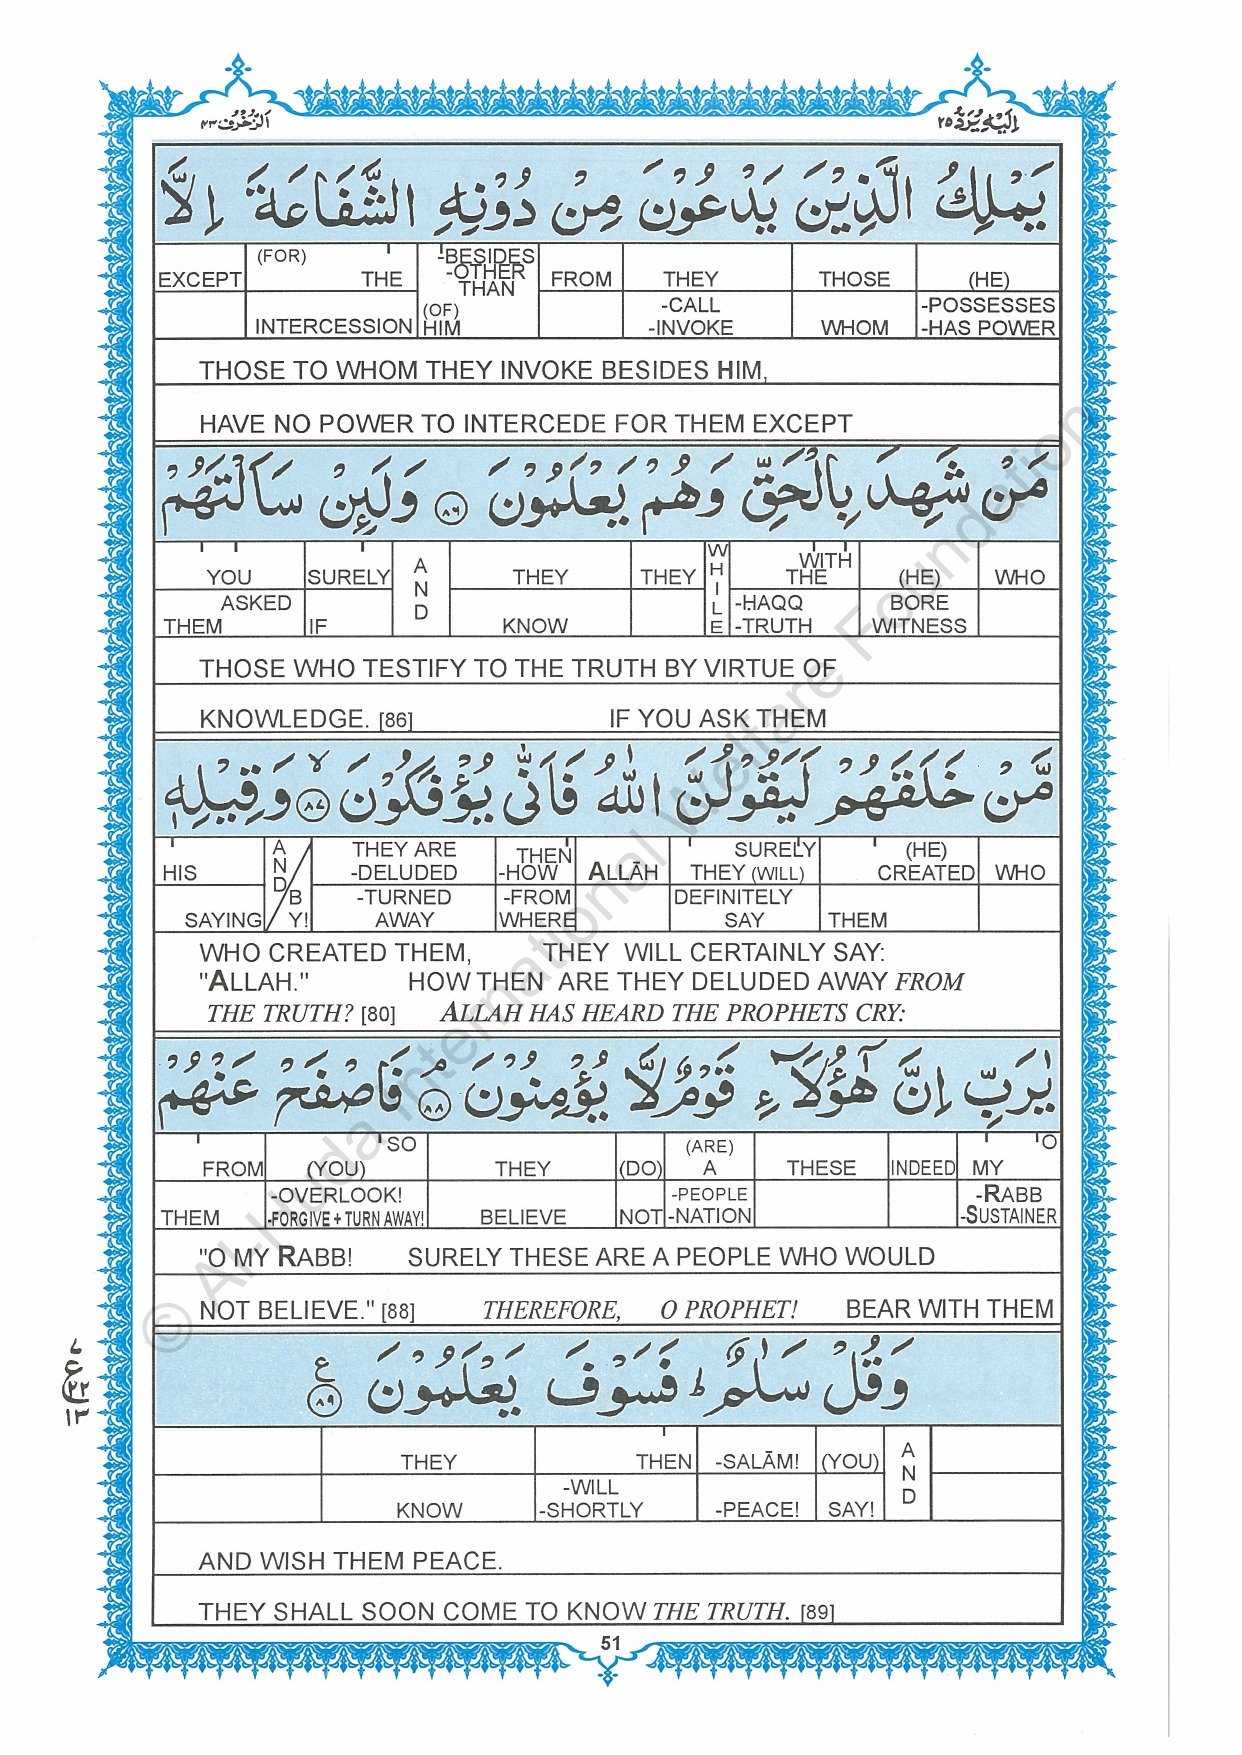 الزخرف ۴۳
اليه يرد ۲۵
يَمْلِكُ الَّذِيْنَ يَدْعُوْنَ مِنْ دُوْنِهِ الشَّفَاعَةَ اِلَّا
EXCEPT (FOR) THE -BESIDES -OTHER THAN FROM THEY THOSE (HE)
INTERCESSION (OF) HIM -CALL -INVOKE WHOM -POSSESSES -HAS POWER
THOSE TO WHOM THEY INVOKE BESIDES HIM,
HAVE NO POWER TO INTERCEDE FOR THEM EXCEPT
مَنْ شَهِدَ بِالْحَقِّ وَهُمْ يَعْلَمُوْنَ ۸۶ وَلَىِٕنْ سَاَلْتَهُمْ
YOU SURELY AND THEY THEY WHILE WITH THE (HE) WHO
ASKED THEM IF KNOW -ḤAQQ -TRUTH BORE WITNESS
THOSE WHO TESTIFY TO THE TRUTH BY VIRTUE OF
KNOWLEDGE. [86] IF YOU ASK THEM
مَّنْ خَلَقَهُمْ لَيَقُوْلُنَّ اللّٰهُ فَاَنّٰى يُؤْفَكُوْنَ ۸۷ لا وَقِيْلِهٖ
HIS AND/BY! THEY ARE -DELUDED THEN -HOW ALLĀH SURELY THEY (WILL) (HE) CREATED WHO
SAYING -TURNED AWAY -FROM WHERE DEFINITELY SAY THEM
WHO CREATED THEM, THEY WILL CERTAINLY SAY:
"ALLAH." HOW THEN ARE THEY DELUDED AWAY FROM
THE TRUTH? [80] ALLAH HAS HEARD THE PROPHETS CRY:
يٰرَبِّ اِنَّ هٰٓؤُلَآءِ قَوْمٌ لَّا يُؤْمِنُوْنَ ۘ ۸۸ فَاصْفَحْ عَنْهُمْ
FROM SO (YOU) THEY (DO) (ARE) A THESE INDEED O MY
THEM -OVERLOOK! -FORGIVE + TURN AWAY! BELIEVE NOT -PEOPLE -NATION -RABB -SUSTAINER
"O MY RABB! SURELY THESE ARE A PEOPLE WHO WOULD
NOT BELIEVE." [88] THEREFORE, O PROPHET! BEAR WITH THEM
وَقُلْ سَلٰمٌ ؕ فَسَوْفَ يَعْلَمُوْنَ ۸۹ ع
THEY THEN -SALĀM! (YOU) AND
KNOW -WILL -SHORTLY -PEACE! SAY!
AND WISH THEM PEACE.
THEY SHALL SOON COME TO KNOW THE TRUTH. [89]
51
۷
ع
۲۲
۱۳
© Al-Huda International Welfare Foundation